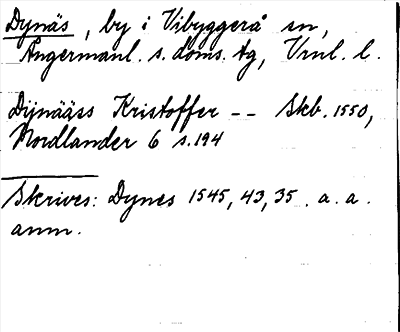 Dynäs, by i Vibyggerå sn,
Ångermanl. s. doms. tg, Vrnl. l.
Dijnääss Kristoffer -- Skb. 1550,
Nordlander 6 s. 194
Skrives: Dynes 1545, 43, 35 . a. a.
anm.